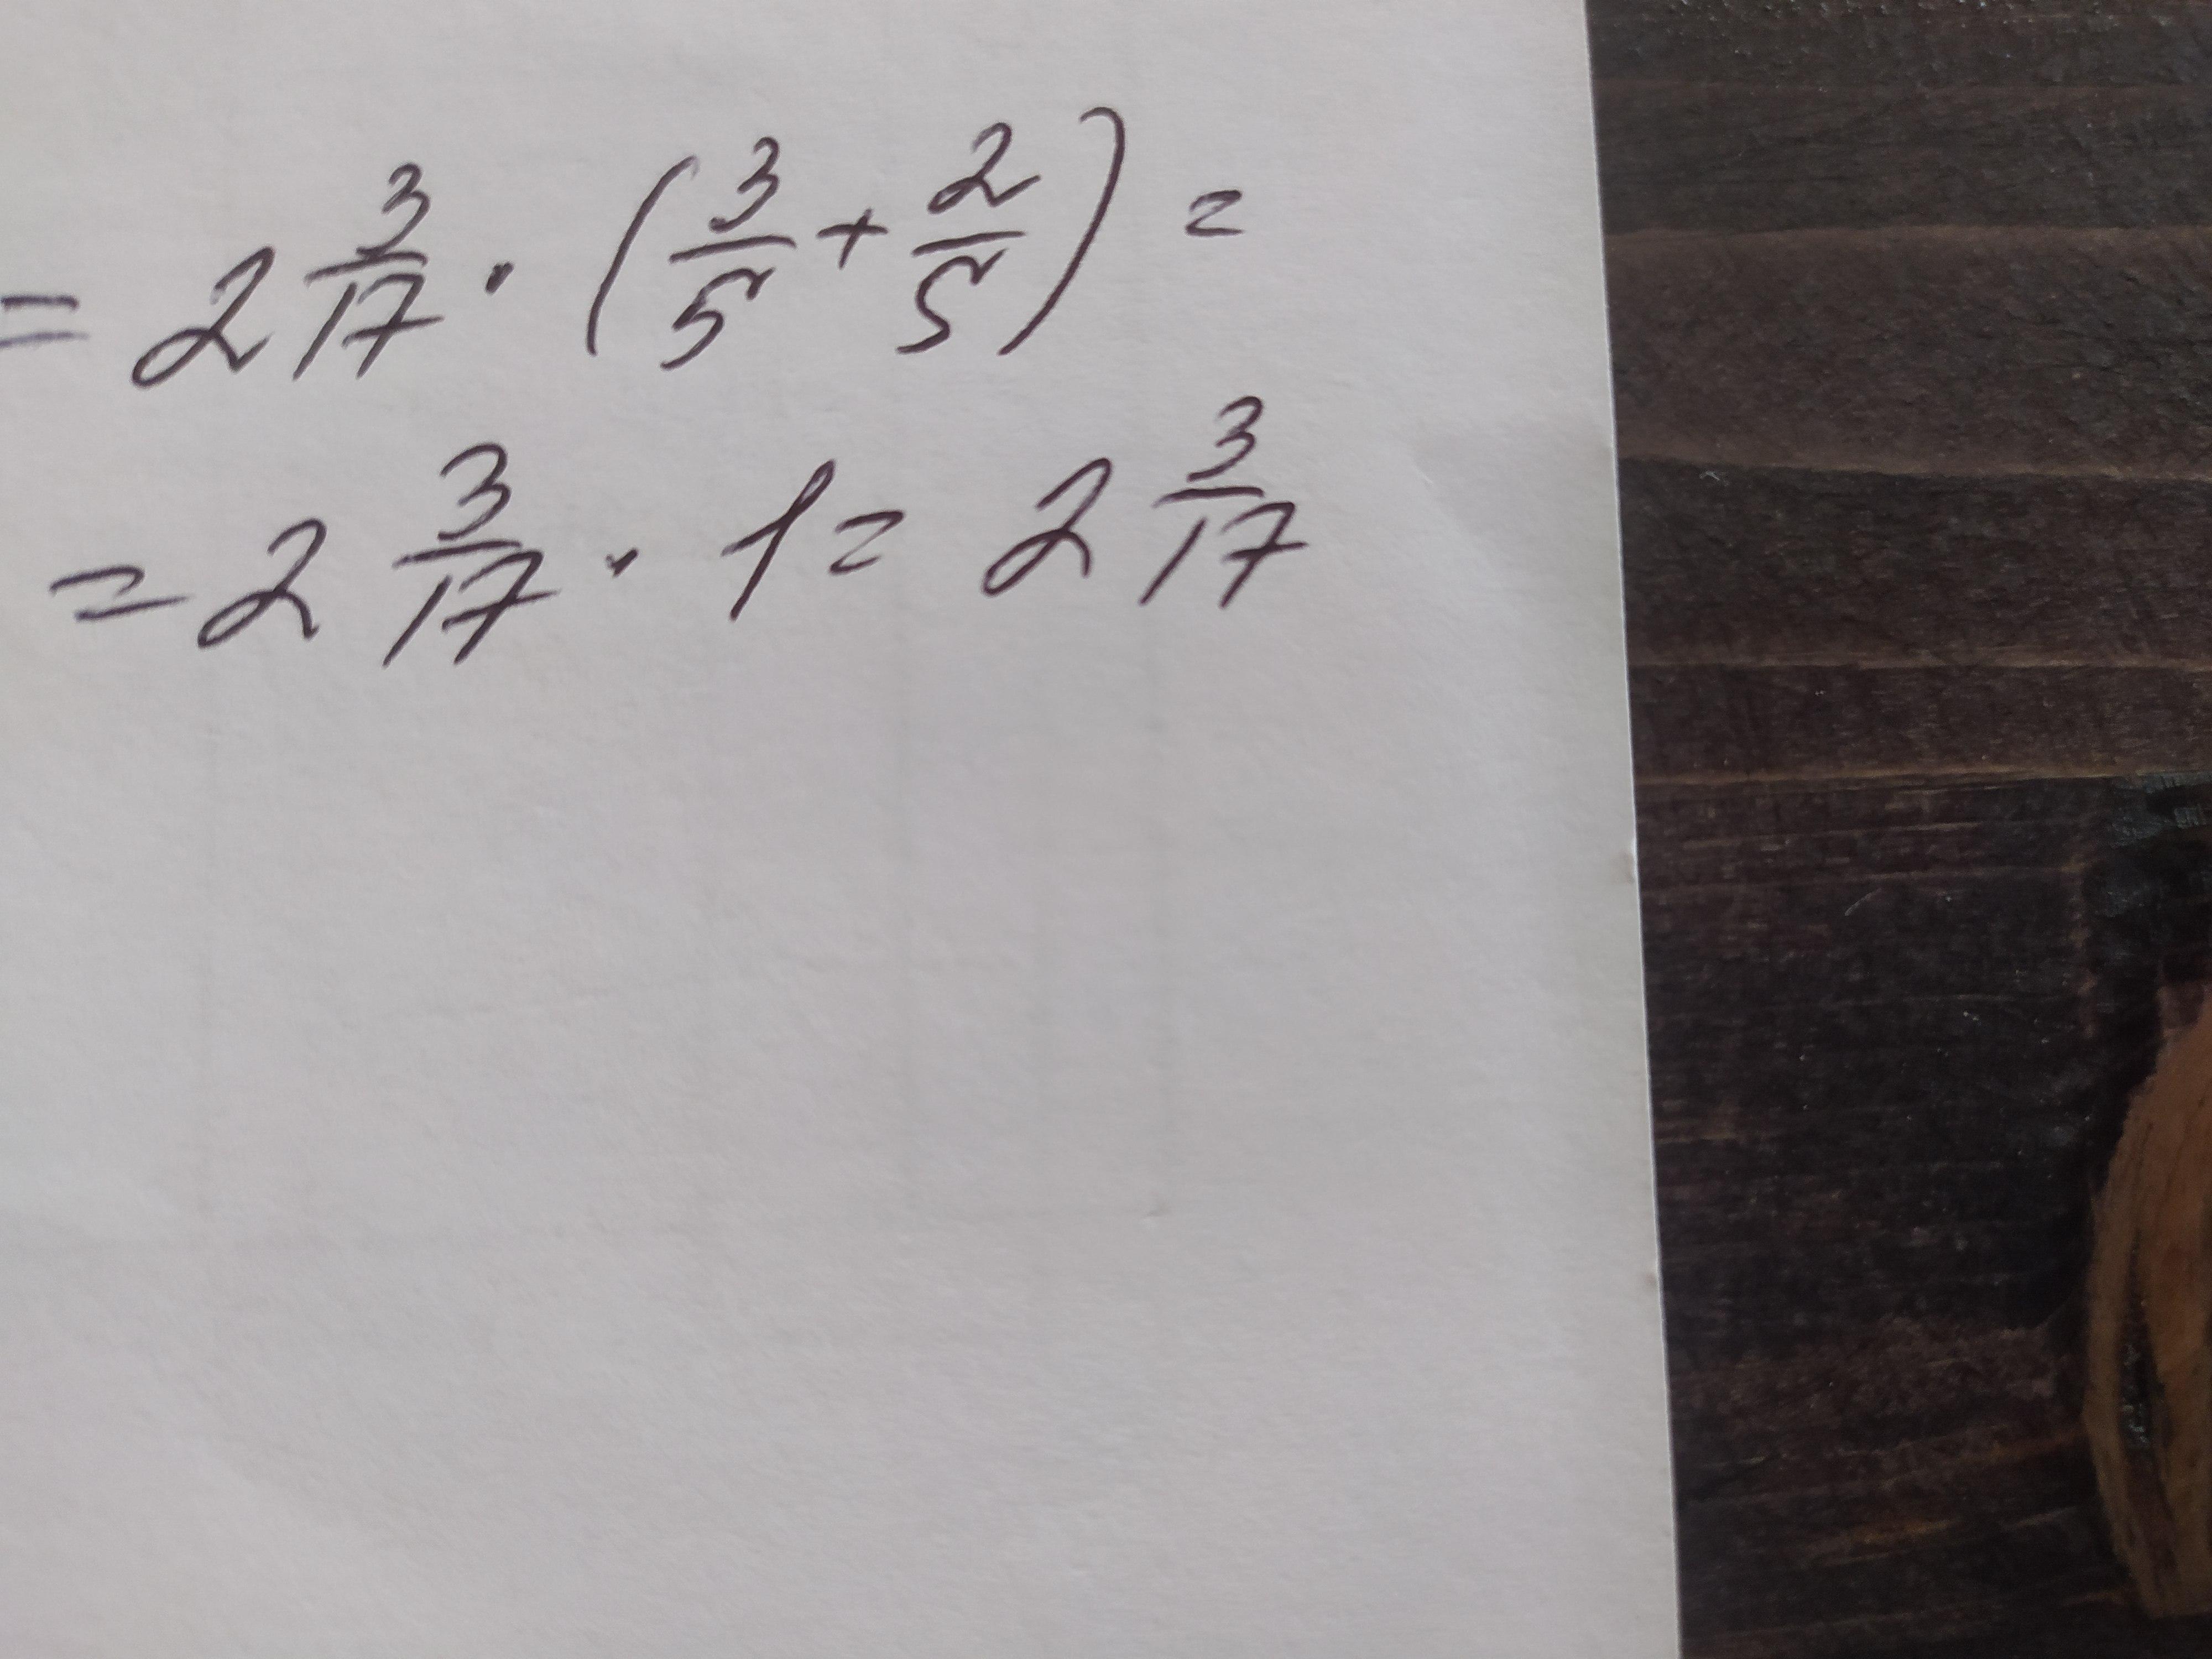 = 2 3/17 · (3/5 + 2/5) =
= 2 3/17 · 1 = 2 3/17